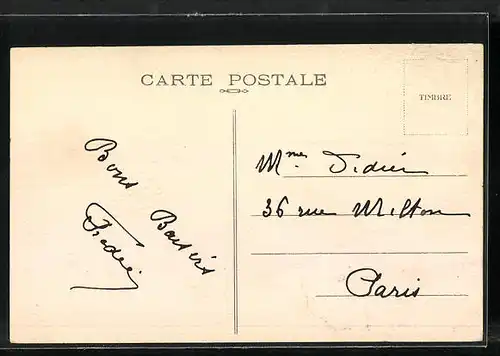 CARTE POSTALE
TIMBRE
Bons Baisers
Mme Didier
36 rue Milton
Paris